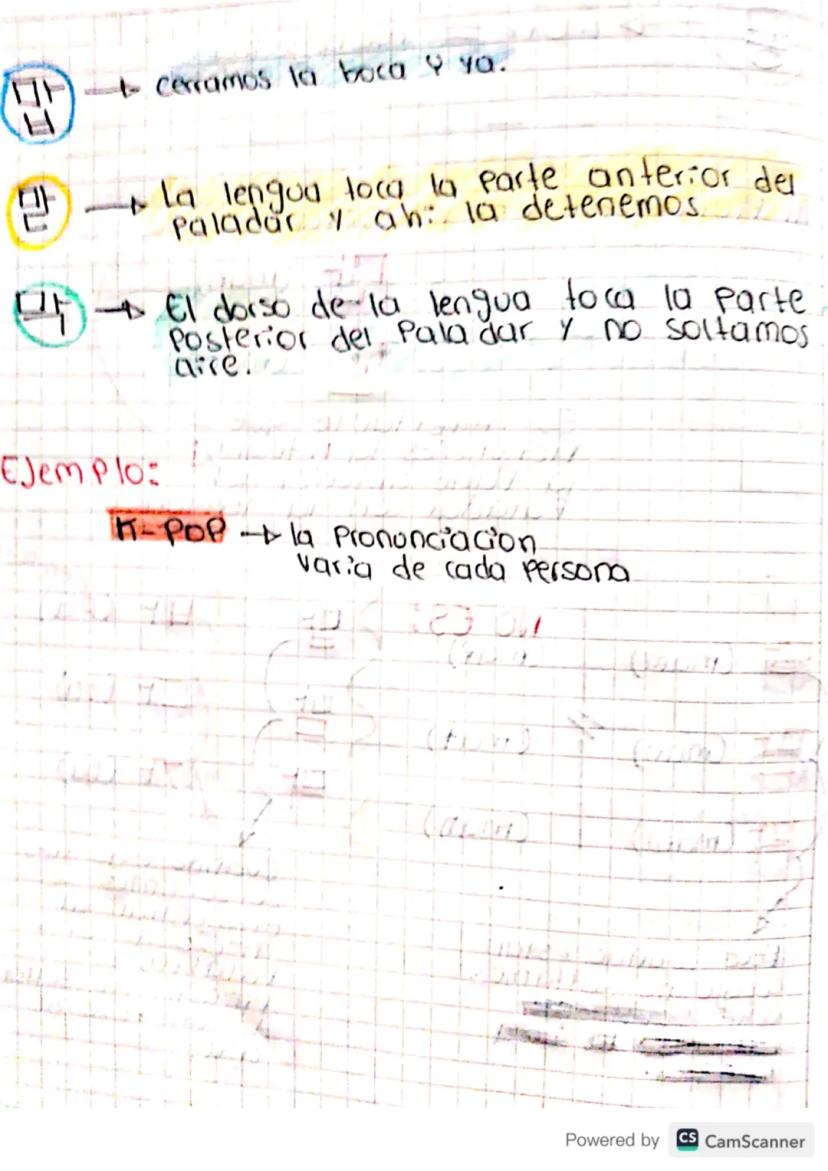 맙 → cerramos la boca y ya.
맏 → la lengua toca la parte anterior del
paladar y ahi la detenemos
막 → El dorso de la lengua toca la parte
posterior del paladar y no soltamos
aire.
Ejemplo:
K-POP → la pronunciacion
varia de cada persona
Powered by CS CamScanner